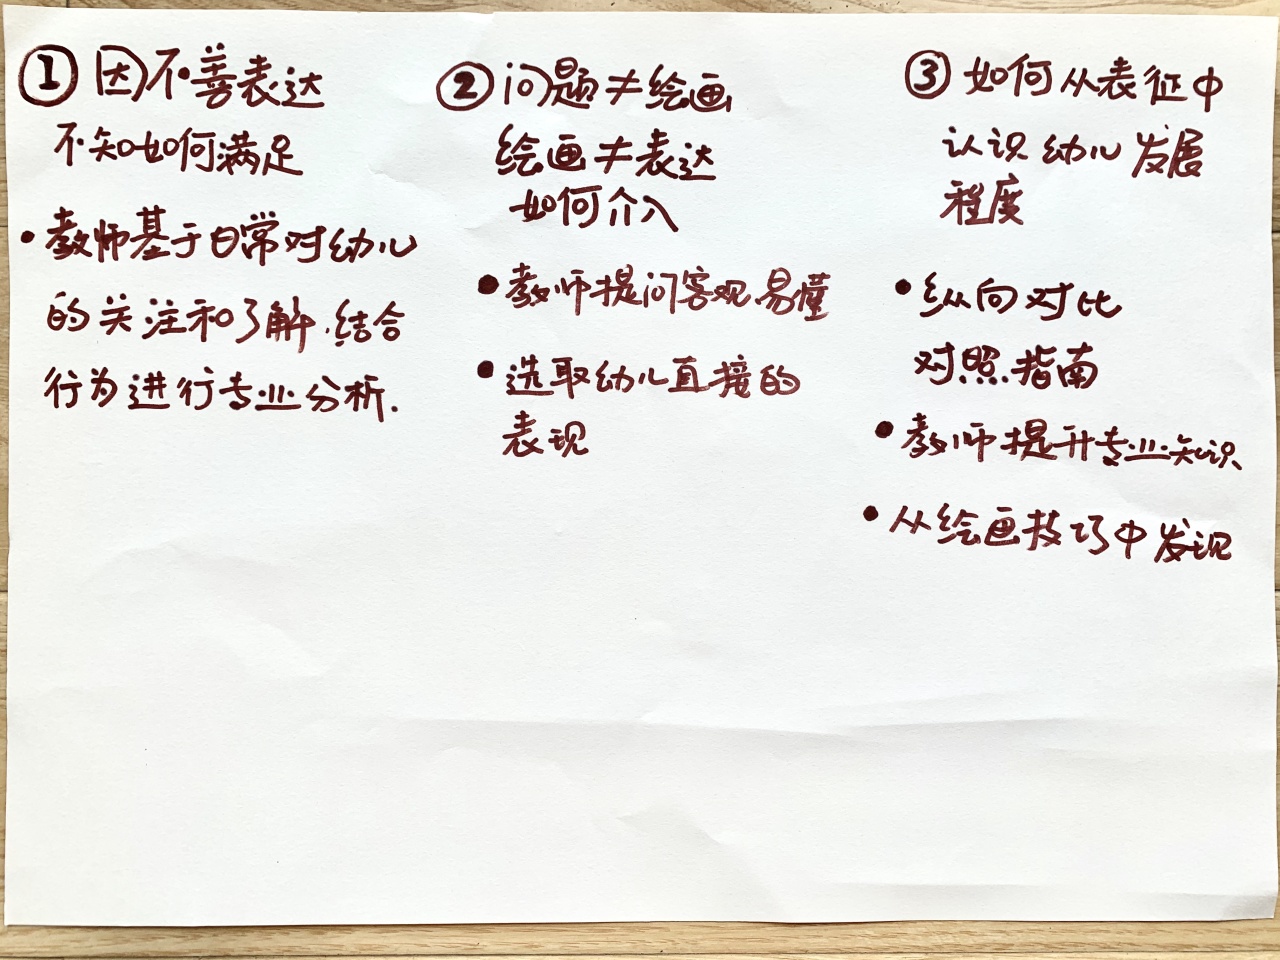 ① 因不善表达
不知如何满足
• 教师基于日常对幼儿
的关注和了解.结合
行为进行专业分析.
② 问题≠绘画
绘画≠表达
如何介入
• 教师提问客观易懂
• 选取幼儿直接的
表现
③ 如何从表征中
认识幼儿发展
程度
• 纵向对比
对照指南
• 教师提升专业知识
• 从绘画技巧中发现